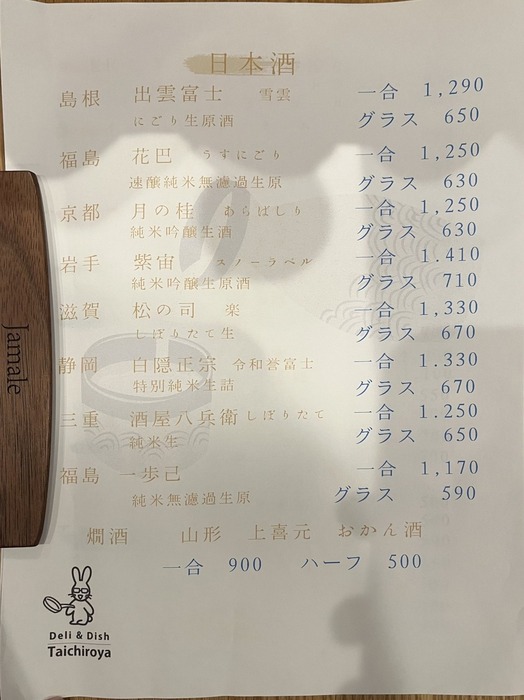 日本酒
島根 出雲富士 雪雲 一合 1,290
にごり生原酒 グラス 650
福島 花巴 うすにごり 一合 1,250
速醸純米無濾過生原 グラス 630
京都 月の桂 あらばしり 一合 1,250
純米吟醸生酒 グラス 630
岩手 紫宙 スノーラベル 一合 1.410
純米吟醸生原酒 グラス 710
滋賀 松の司 楽 一合 1,330
しぼりたて生 グラス 670
静岡 白隠正宗 令和誉富士 一合 1.330
特別純米生詰 グラス 670
三重 酒屋八兵衛 しぼりたて 一合 1.250
純米生 グラス 650
福島 一歩己 一合 1,170
純米無濾過生原 グラス 590
燗酒 山形 上喜元 おかん酒
一合 900 ハーフ 500
Jamale
Deli & Dish
Taichiroya